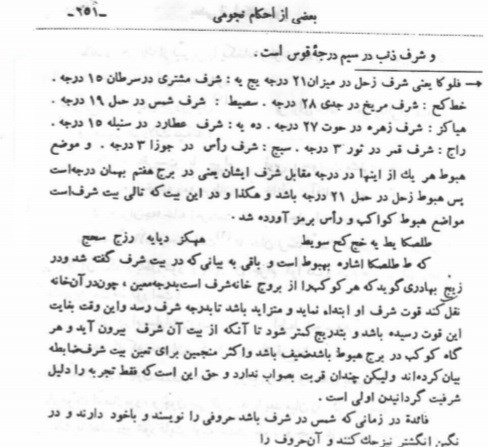 بعضی از احکام نجومی -۲۵۱-
و شرف ذنب در سیم درجهٔ قوس است.
فلوکا یعنی شرف زحل در میزان ۲۱ درجه یج یه: شرف مشتری درسرطان ۱۵ درجه.
خطکح: شرف مریخ در جدی ۲۸ درجه. سمیط: شرف شمس در حمل ۱۹ درجه.
هیاکز: شرف زهره در حوت ۲۷ درجه. ده یه: شرف عطارد در سنبله ۱۵ درجه.
راج: شرف قمر در ثور ۳ درجه. سبج: شرف رأس در جوزا ۳ درجه. و موضع
هبوط هر یك از اینها در درجه مقابل شرف ایشان یعنی در برج هفتم بهمان درجه‌است
پس هبوط زحل در حمل ۲۱ درجه باشد و هکذا و در این بیت که تالی بیت شرف‌است
مواضع هبوط کواکب و رأس برمز آورده شد.
طلصکا یط یه خج کح سویط همکز دیایه رزج سحج
که ط طلصکا اشاره بهبوط است و باقی به بیانی که در بیت شرف گفته شد ودر
زیج بهادری گوید که هر کوکب را از بروج خانه شرف است بدرجه معین، چون در آن خانه
نقل کند قوت شرف او ابتداء نماید و متزاید باشد تا بدرجه شرف رسد و این وقت بغایت
این قوت رسیده باشد و بتدریج کمتر شود تا آنکه از بیت آن شرف بیرون آید و هر
گاه کوکب در برج هبوط باشد ضعیف باشد و اکثر منجمین برای تعین بیت شرف ضابطه
بیان کرده‌اند ولیکن چندان قربت بصواب ندارد و حق این است که فقط تجربه را دلیل
شرفیت گردانیدن اولی است.
فائدة در زمانی که شمس در شرف باشد حروفی را نویسند و باخود دارند و در
نگین انگشتری نیز حك کنند و آن حروف را